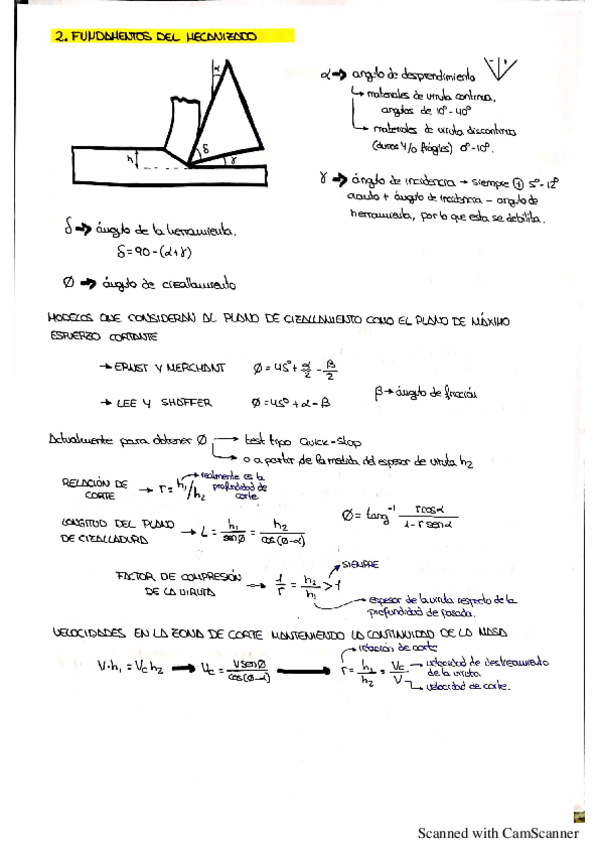 2. FUNDAMENTOS DEL MECANIZADO
α → ángulo de desprendimiento
→ materiales de viruta continua,
angulos de 10º-40º
→ materiales de viruta discontinua
(duros y/o frágiles) 0º-10º.
γ → ángulo de incidencia → siempre ⊕ 5º-12º
cuanto + ángulo de incidencia - angulo de
herramienta, por lo que esta se debilita.
α
δ
γ
h
δ → ángulo de la herramienta.
δ = 90 - (α+γ)
Ø → ángulo de cizallamiento
MODELOS QUE CONSIDERAN AL PLANO DE CIZALLAMIENTO COMO EL PLANO DE MÁXIMO
ESFUERZO CORTANTE
→ ERNST Y MERCHANT Ø = 45º + α/2 - β/2
β → ángulo de fricción
→ LEE Y SHAFFER Ø = 45º + α - β
Actualmente para obtener Ø → test tipo Quick-Stop
→ o a partir de la medida del espesor de viruta h2
RELACIÓN DE CORTE → r = h1/h2 → realmente es la profundidad de corte.
Ø = tang⁻¹ rcosα / 1 - r senα
LONGITUD DEL PLANO DE CIZALLADURA → L = h1/senØ = h2/cos(Ø-α)
FACTOR DE COMPRESIÓN DE LA VIRUTA → 1/r = h2/h1 > 1
SIEMPRE
→ espesor de la viruta respecto de la
profundidad de pasada.
VELOCIDADES EN LA ZONA DE CORTE MANTENIENDO LA CONTINUIDAD DE LA MASA
→ relación de corte
V·h1 = Vc h2 → Vc = V senØ / cos(Ø-α) → r = h1/h2 = Vc/V
→ velocidad de deslizamiento
de la viruta.
→ velocidad de corte.
Scanned with CamScanner